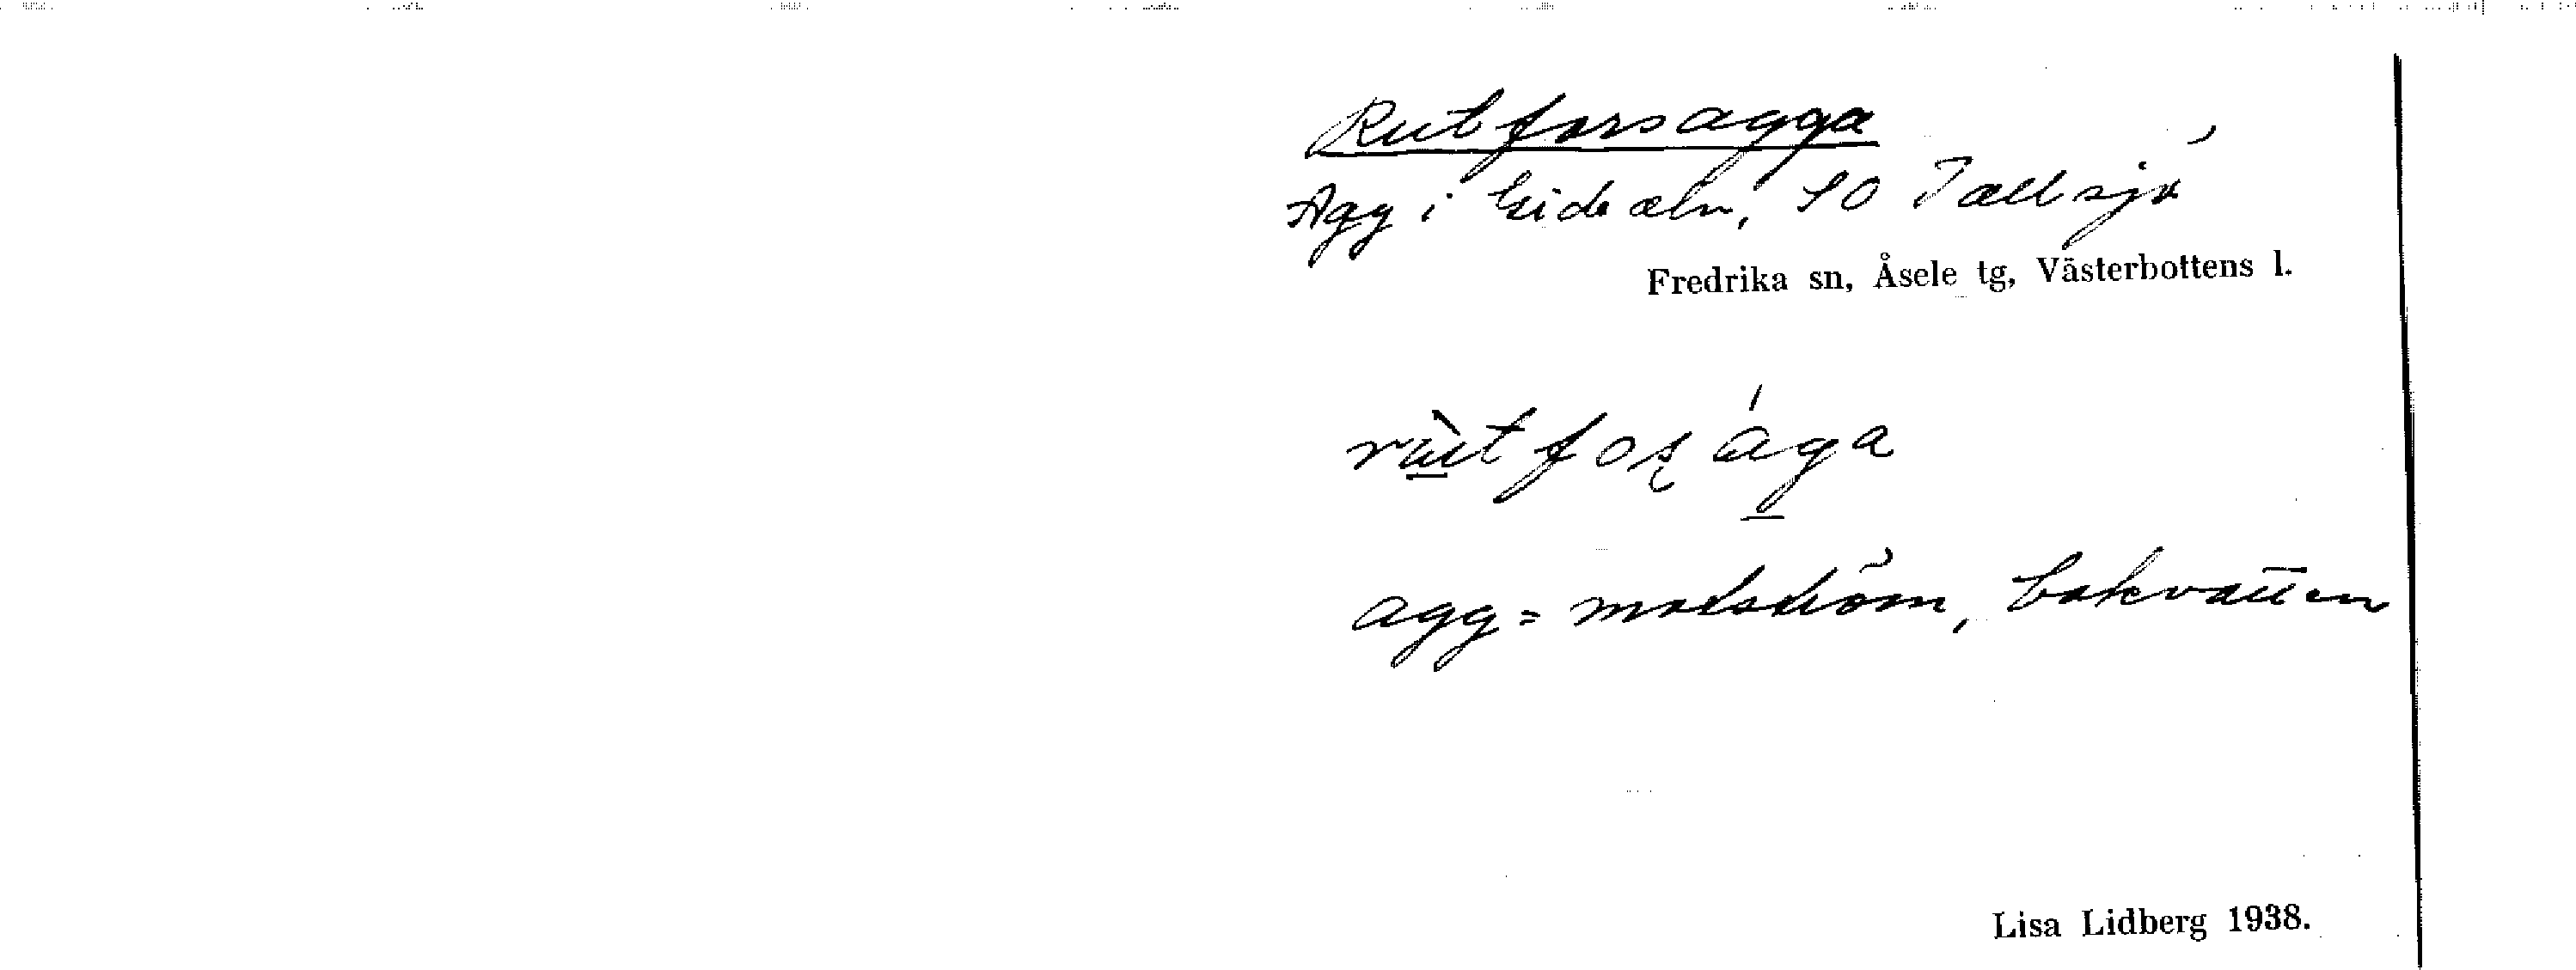 Rutforsagga
Agg i Gide älv, SO Tallsjö
Fredrika sn, Åsele tg, Västerbottens l.
rùtfoʂ ága
agg = motström, bakvatten
Lisa Lidberg 1938.